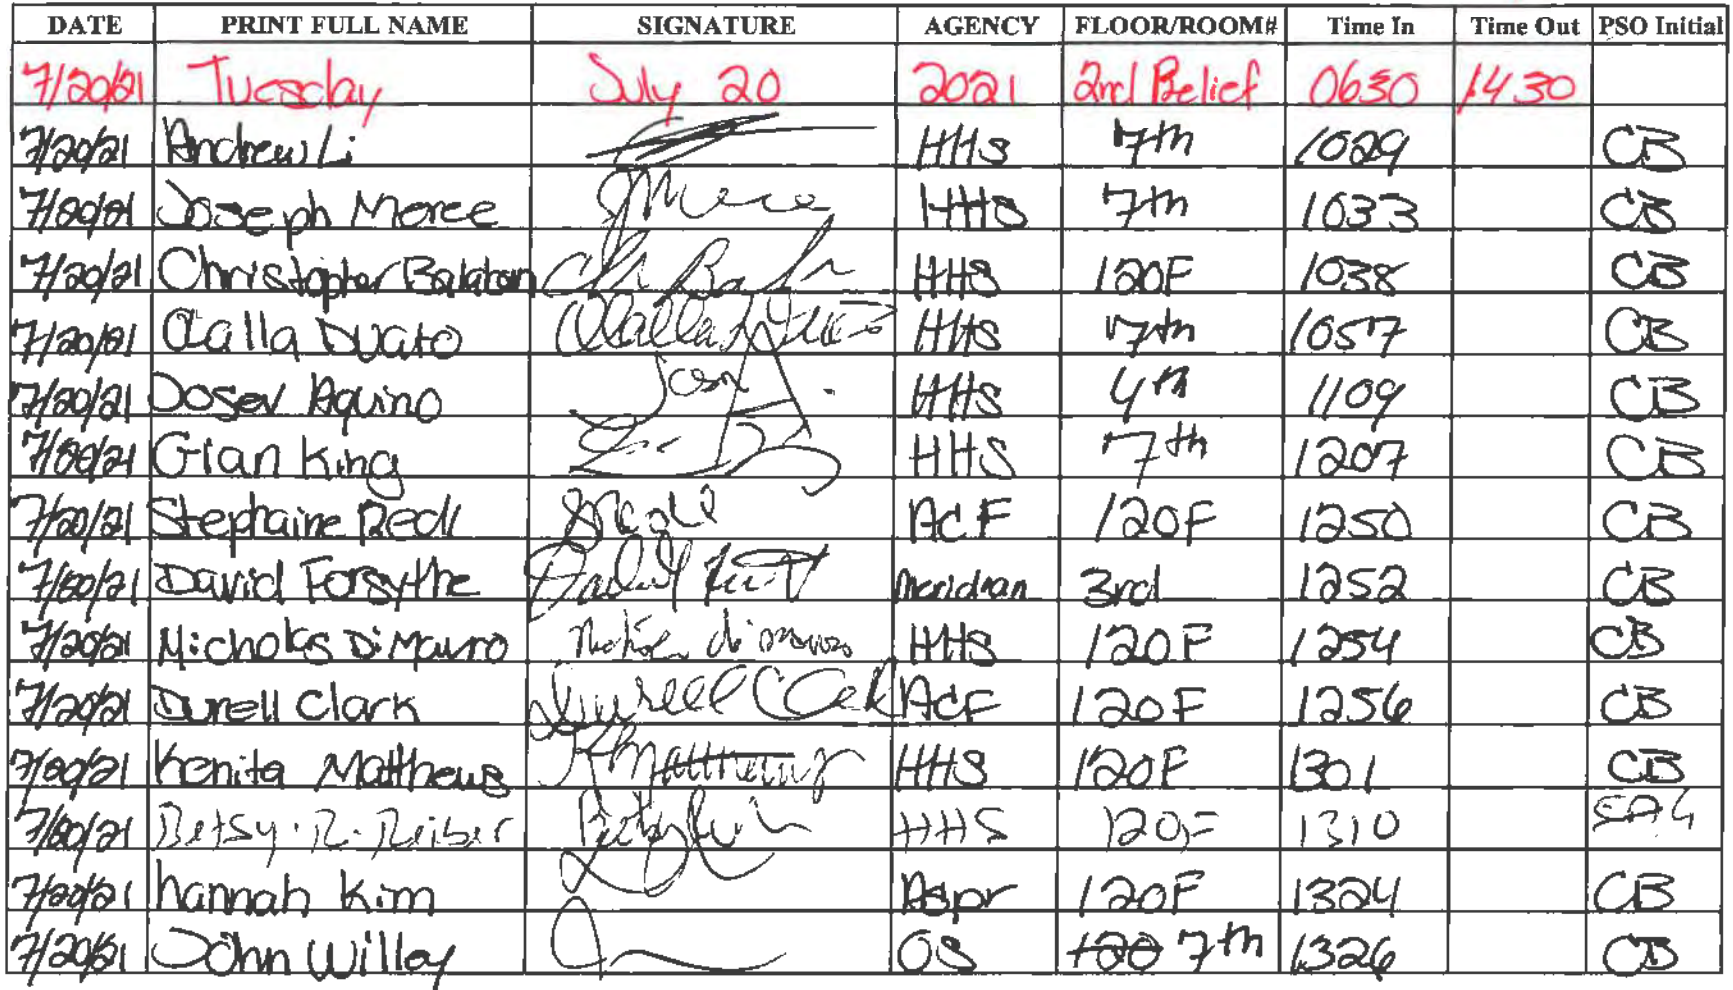 DATE PRINT FULL NAME SIGNATURE AGENCY FLOOR/ROOM# Time In Time Out PSO Initial
7/20/21 Tuesday July 20 2021 2nd Belief 0630 1430
7/20/21 Andrew Li HHS 7th 1029 CB
7/20/21 Joseph Merce JMerce HHS 7th 1033 CB
7/20/21 Christopher Balaban HHS 120F 1038 CB
7/20/21 Olalla Duato Olalla HHS 7th 1057 CB
7/20/21 Josev Aquino HHS 4th 1109 CB
7/20/21 Gian King HHS 7th 1207 CB
7/20/21 Stephaine Redl ACF 120F 1250 CB
7/20/21 David Forsythe Meridian 3rd 1252 CB
7/20/21 Nicholas DiMauro HHS 120F 1254 CB
7/20/21 Durell Clark Durrell Clark ACF 120F 1256 CB
7/20/21 Kenita Matthews KMatthews HHS 120F 1301 CB
7/20/21 Betsy. R. Reiber HHS 120F 1310
7/20/21 hannah Kim Aspr 120F 1324 CB
7/20/21 John Willey OS 120 7th 1326 CB